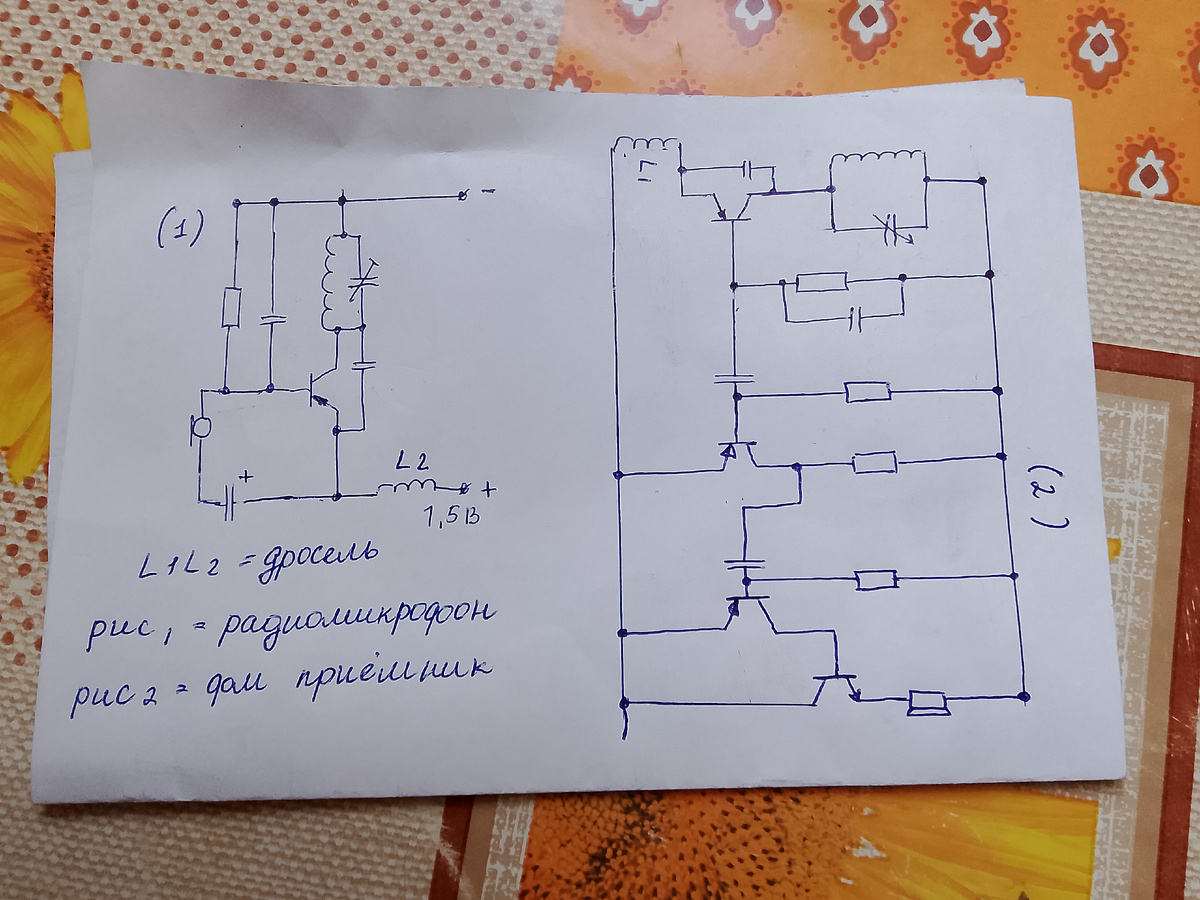 (1)
-
+
L2
+
1,5В
L1L2 = дросель
рис, = радиомикрофон
рис2 = дом приёмник
L1
(2)